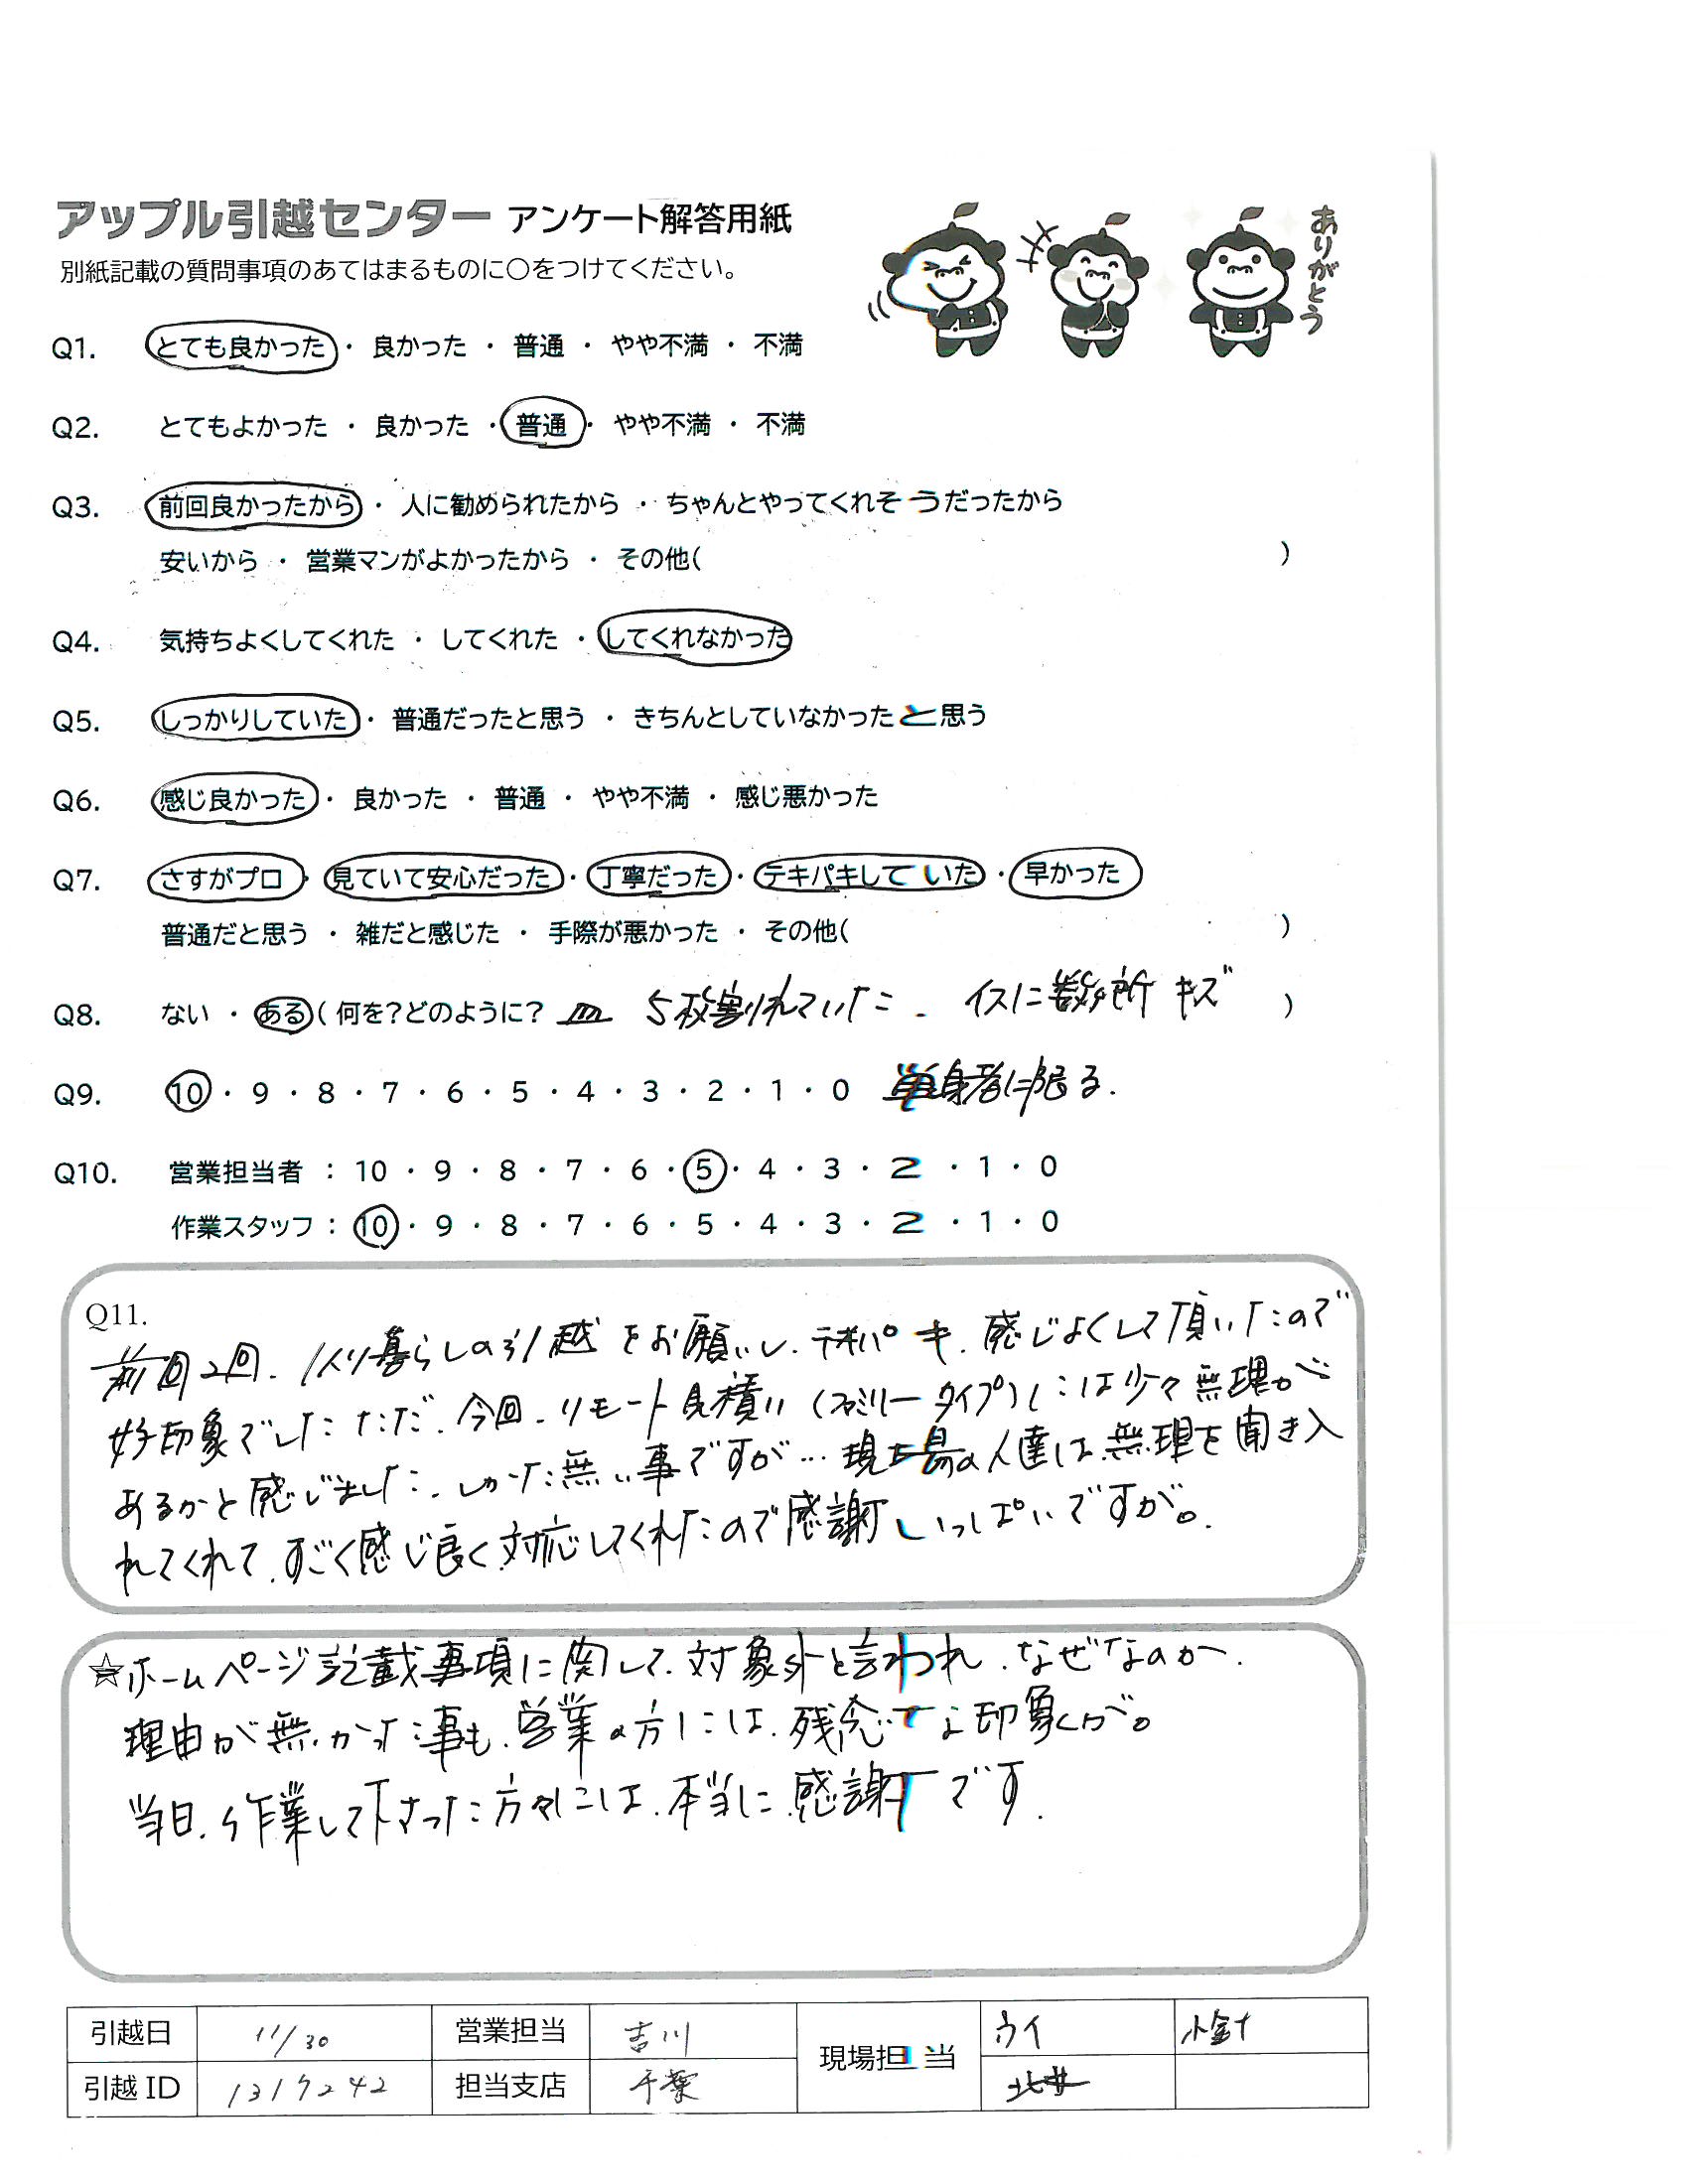 アップル引越センター アンケート解答用紙
ありがとう
別紙記載の質問事項のあてはまるものに〇をつけてください。
Q1. とても良かった ・ 良かった ・ 普通 ・ やや不満 ・ 不満
Q2. とてもよかった ・ 良かった ・ 普通 ・ やや不満 ・ 不満
Q3. 前回良かったから ・ 人に勧められたから ・ ちゃんとやってくれそうだったから
安いから ・ 営業マンがよかったから ・ その他( )
Q4. 気持ちよくしてくれた ・ してくれた ・ してくれなかった
Q5. しっかりしていた ・ 普通だったと思う ・ きちんとしていなかったと思う
Q6. 感じ良かった ・ 良かった ・ 普通 ・ やや不満 ・ 感じ悪かった
Q7. さすがプロ ・ 見ていて安心だった ・ 丁寧だった ・ テキパキしていた ・ 早かった
普通だと思う ・ 雑だと感じた ・ 手際が悪かった ・ その他( )
Q8. ない ・ ある ( 何を?どのように? 皿 5枚割れていた. イスに数ヶ所 キズ )
Q9. 10 ・ 9 ・ 8 ・ 7 ・ 6 ・ 5 ・ 4 ・ 3 ・ 2 ・ 1 ・ 0 単身者に限る.
Q10. 営業担当者 : 10 ・ 9 ・ 8 ・ 7 ・ 6 ・ 5 ・ 4 ・ 3 ・ 2 ・ 1 ・ 0
作業スタッフ : 10 ・ 9 ・ 8 ・ 7 ・ 6 ・ 5 ・ 4 ・ 3 ・ 2 ・ 1 ・ 0
Q11.
前回2回、1人暮らしの引越をお願いし、テキパキ、感じよくして頂いたので
好印象でした ただ、今回、リモート見積り(ファミリータイプ)には少々無理が
あるかと感じました. しかた無い事ですが… 現場の人達は、無理を聞き入
れてくれて、すごく感じ良く対応してくれたので感謝いっぱいですが。
☆ホームページ記載事項に関して、対象外と言われ、なぜなのか、
理由が無かった事も、営業の方には、残念な印象が。
当日、作業して下さった方々には、本当に感謝です.
引越日 11/30 営業担当 吉川 現場担当 ウイ 小針
引越ID 1317242 担当支店 千葉 北井